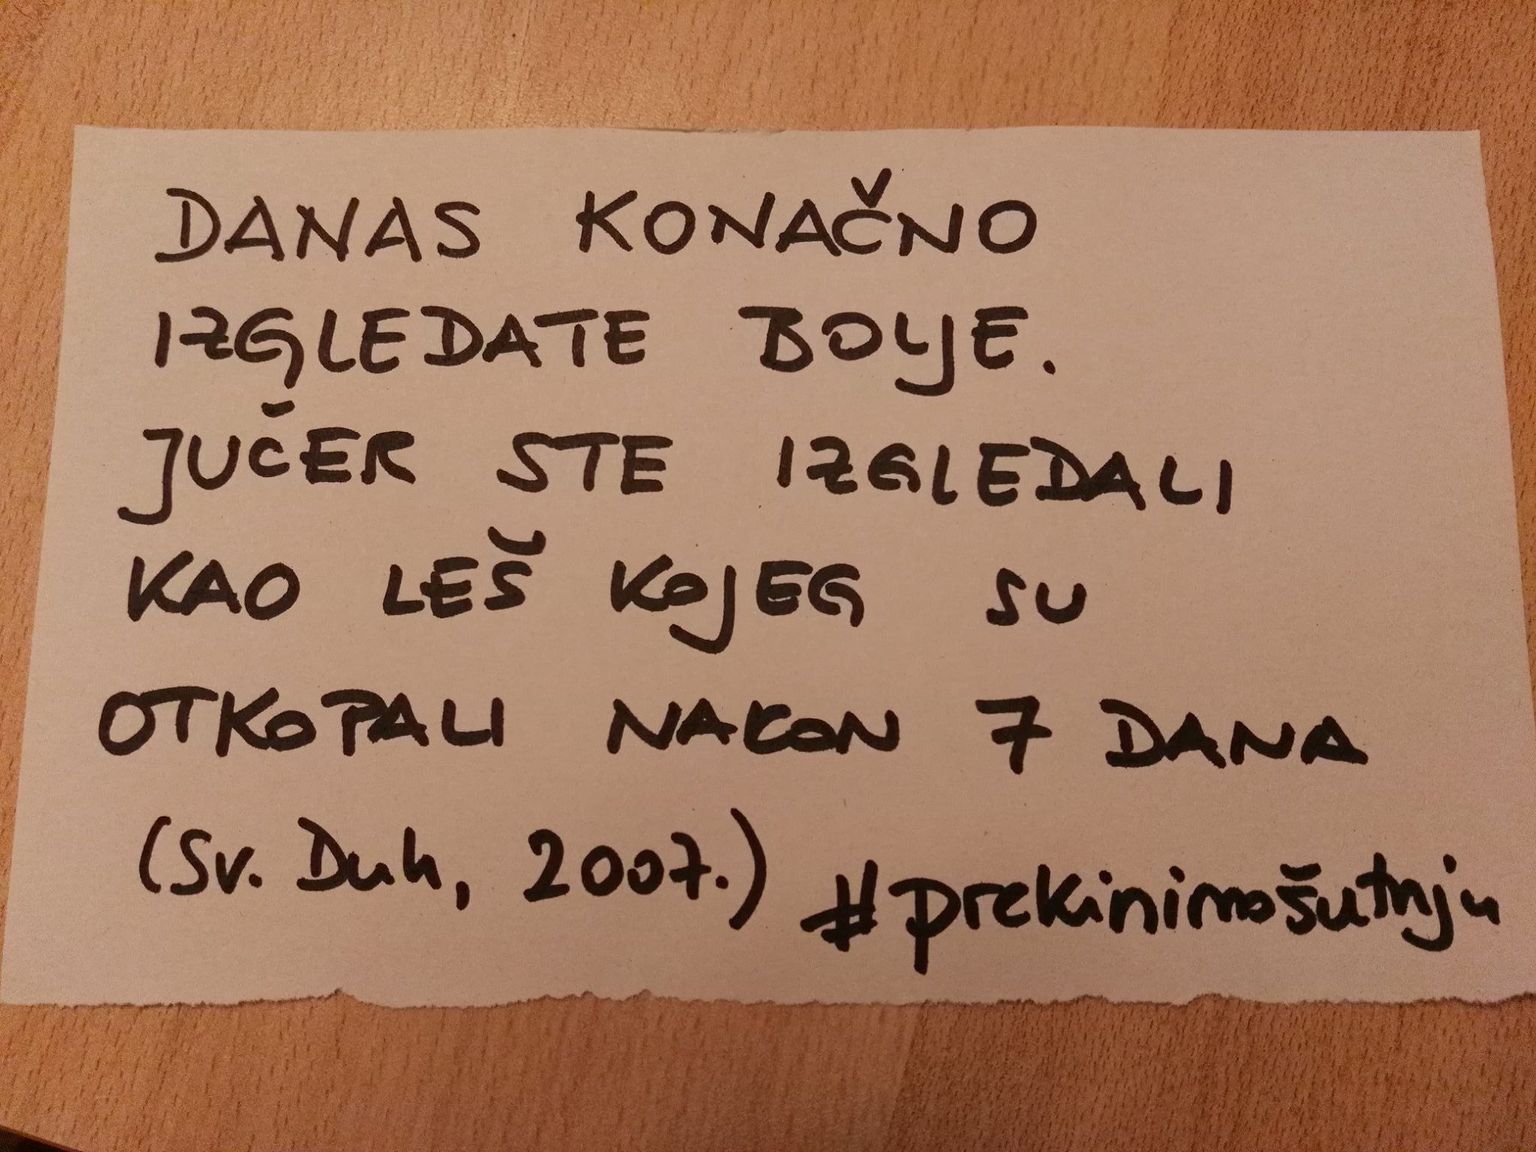 DANAS KONAČNO
IZGLEDATE BOLJE.
JUČER STE IZGLEDALI
KAO LEŠ KOJEG SU
OTKOPALI NAKON 7 DANA
(Sv. Duh, 2007.) #prekinimošutnju